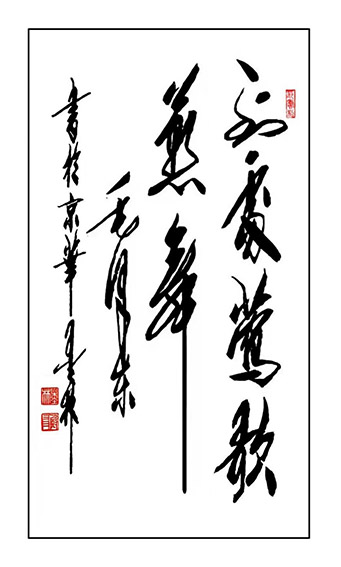 到處鶯歌
燕舞
毛澤東
書於京華